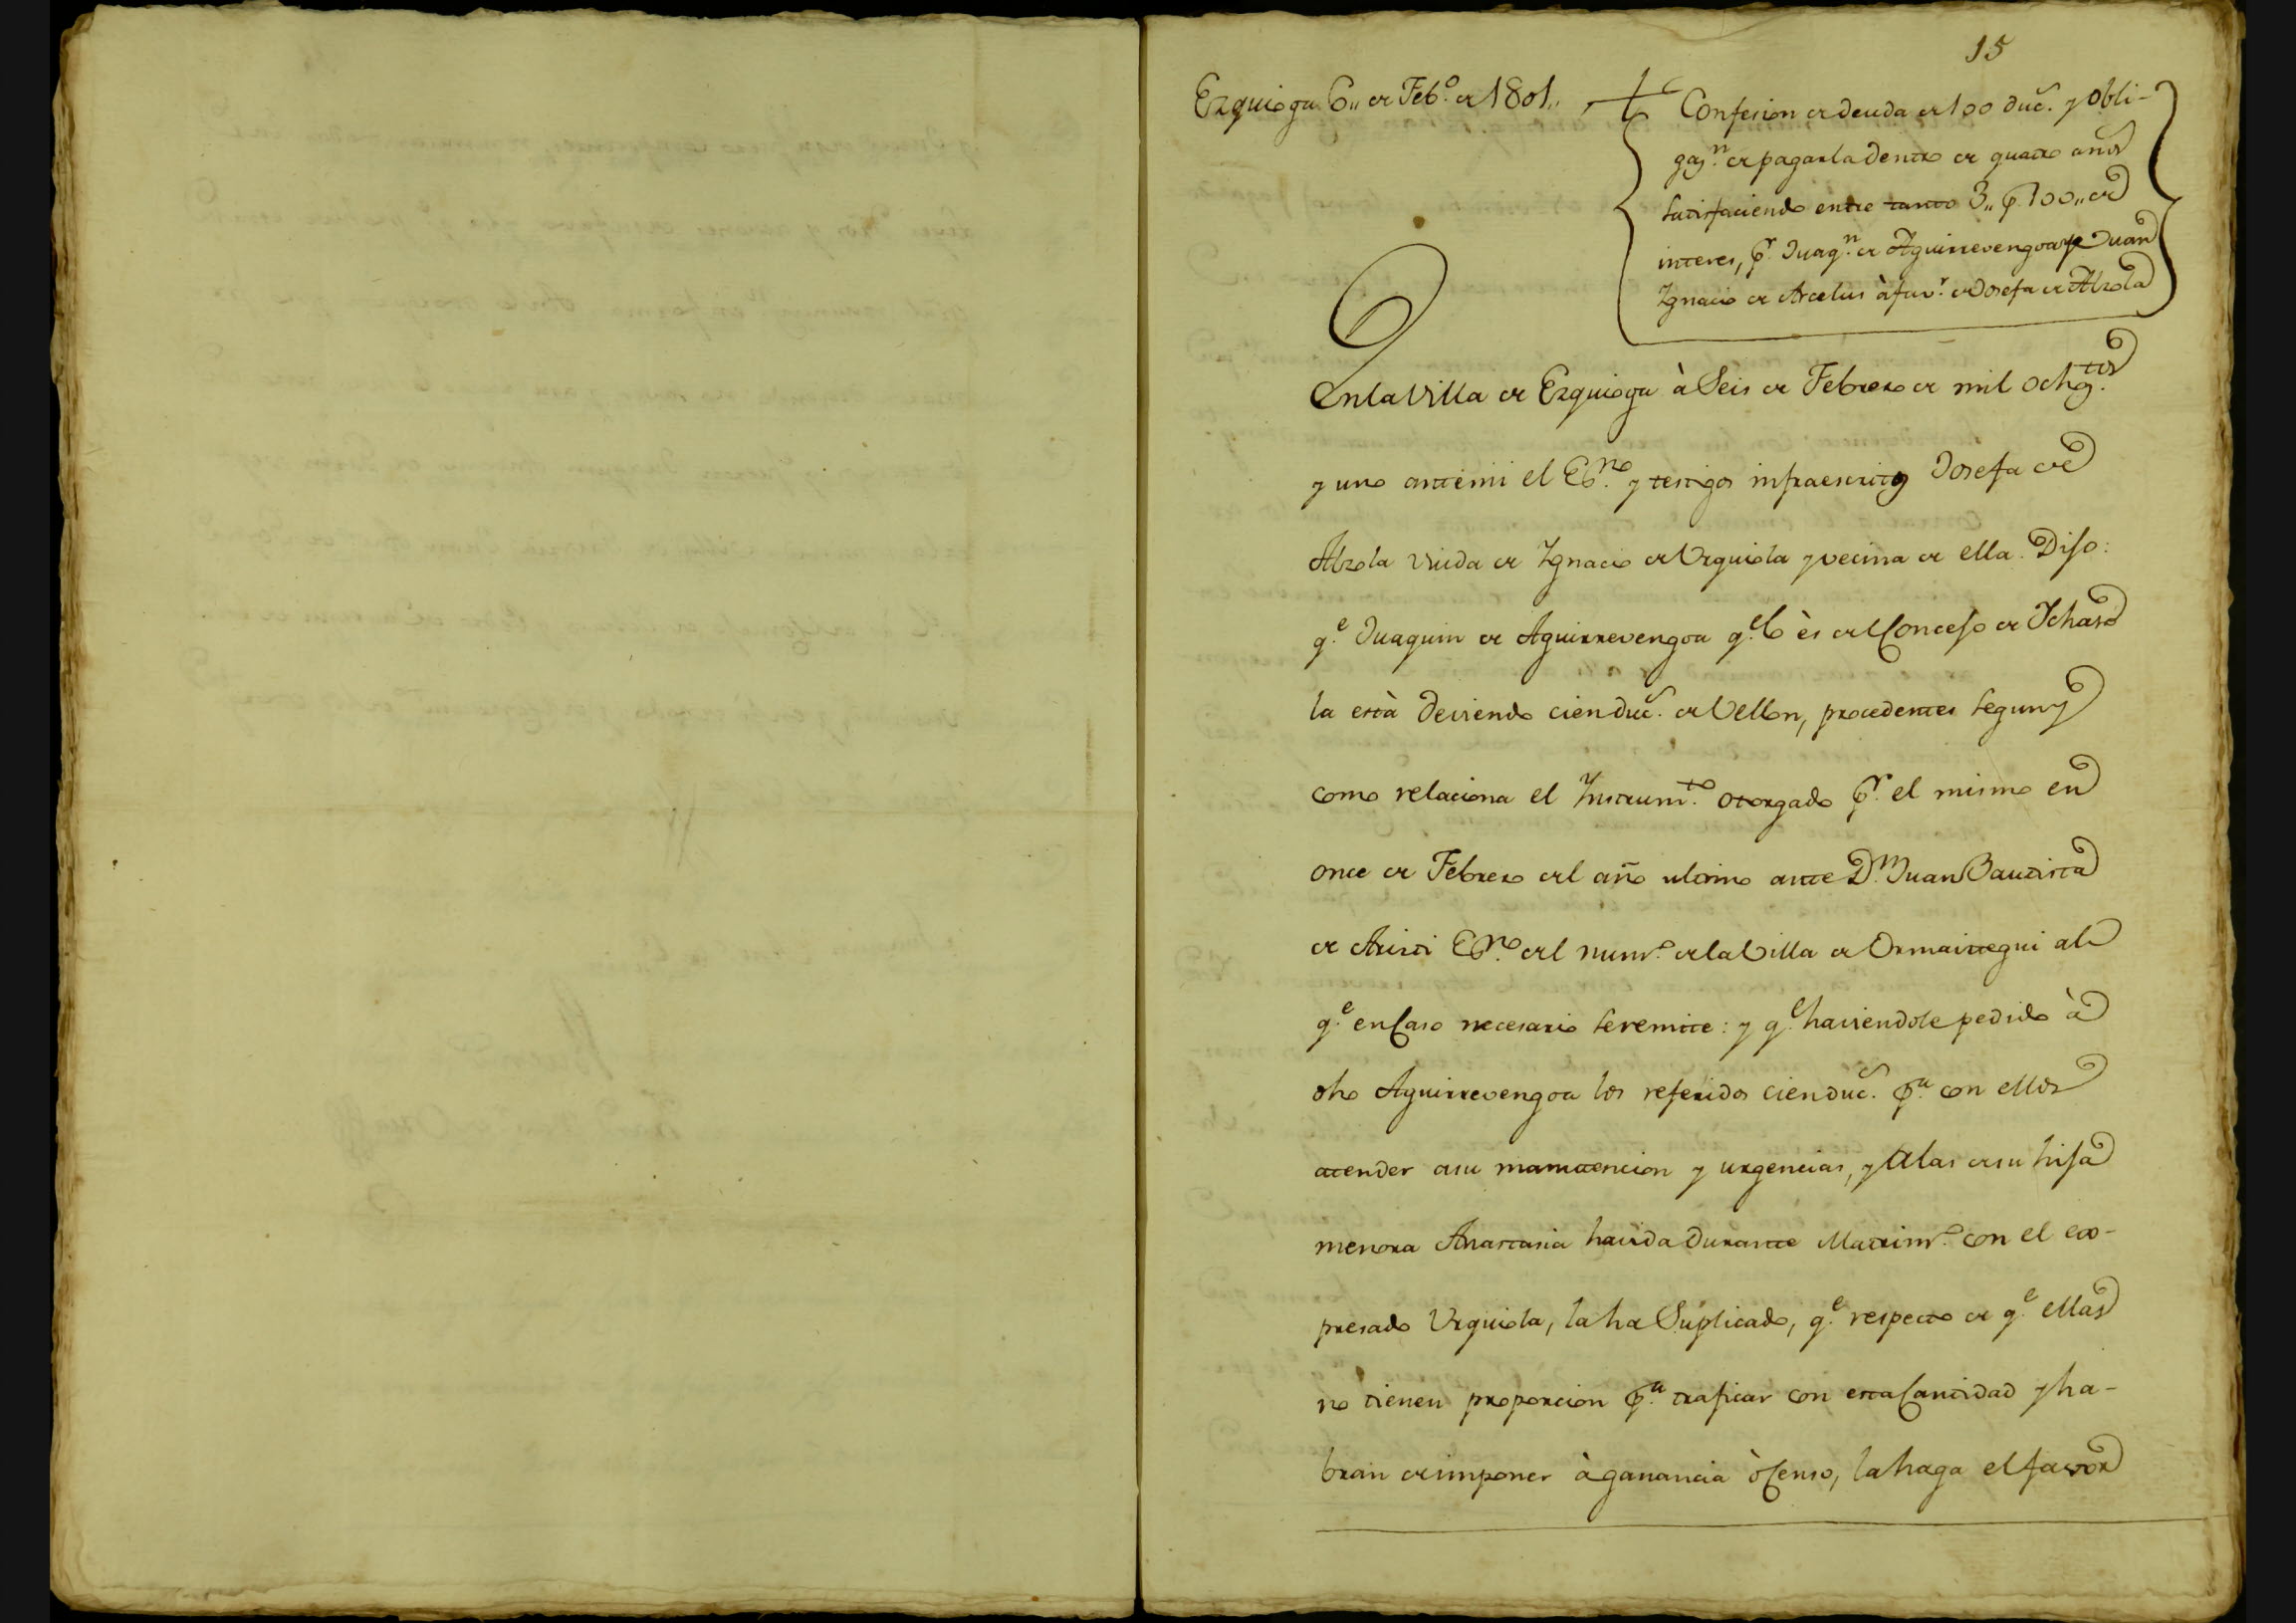 15
Ezquioga 6,, de Feb.º de 1801,,
Confesion de deuda de 100 duc.s y obli-
gaz.n de pagarla dentro de quatro años
satisfaciendo entre tanto 3,, p.100,, de
interes, p.r Juaq.n de Aguirrevengoa y Juan
Ygnacio de Arcelus à fav.r de Josefa de Alzola
En la Villa de Ezquioga à Seis de Febrero de mil ochoz.tos
y uno ante mi el Es.no y testigos infraescritos Josefa de
Alzola viuda de Ygnacio de Urquiola y vecina de ella. Dijo:
q.e Juaquin de Aguirrevengoa q.e lo ès del Concejo de Ychaso
la està deviendo cien duc.s de Vellon, procedentes segun y
como relaciona el Instrum.to otorgado p.r el mismo en
once de Febrero del año ultimo ante D.n Juan Bautista
de Aristi Es.no del num.o de la Villa de Ormaiztegui al
q.e en Caso necesario se remite: y q.e haviendole pedido à
dho Aguirrevengoa los referidos cien duc.s p.a con ellos
atender a su manutencion y urgencias, y a las de su hija
menora Anastasia havida durante Matrim.o con el ex-
presado Urquiola, la ha Suplicado, q.e respecto de q.e ellas
no tienen proporcion p.a traficar con esta Cantidad y ha-
bran de imponer à ganancia ò Censo, la haga el favor